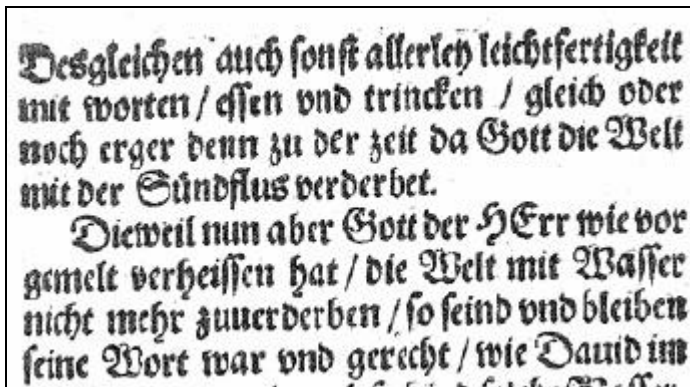 Desgleichen auch sonst allerley leichtfertigkeit
mit worten / essen vnd trincken / gleich oder
noch erger denn zu der zeit da Gott die Welt
mit der Sündflus verderbet.
Dieweil nun aber Gott der HErr wie vor
gemelt verheissen hat / die Welt mit Wasser
nicht mehr zuuerderben / so seind vnd bleiben
seine Wort war vnd gerecht / wie Dauid im